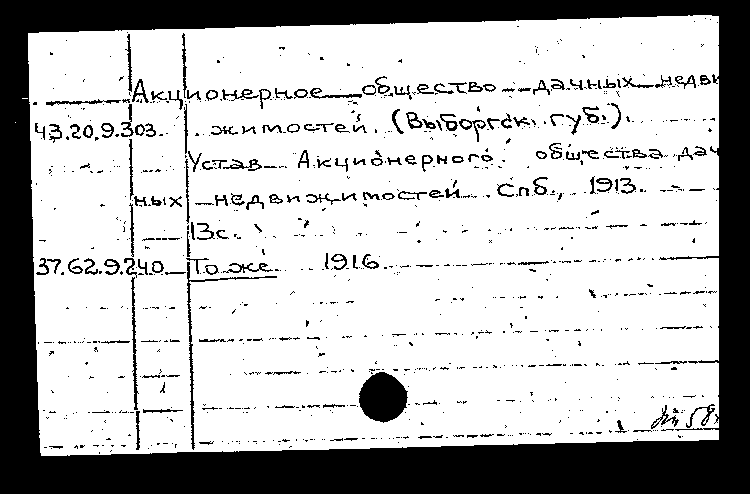 Акционерное общество дачных недви
43.20.9.303. жимостей. (Выборгск. губ.).
Устав Акционерного общества дач
ных недвижимостей. Спб., 1913.
13с.
37.62.9.240. То же. 1916.
58